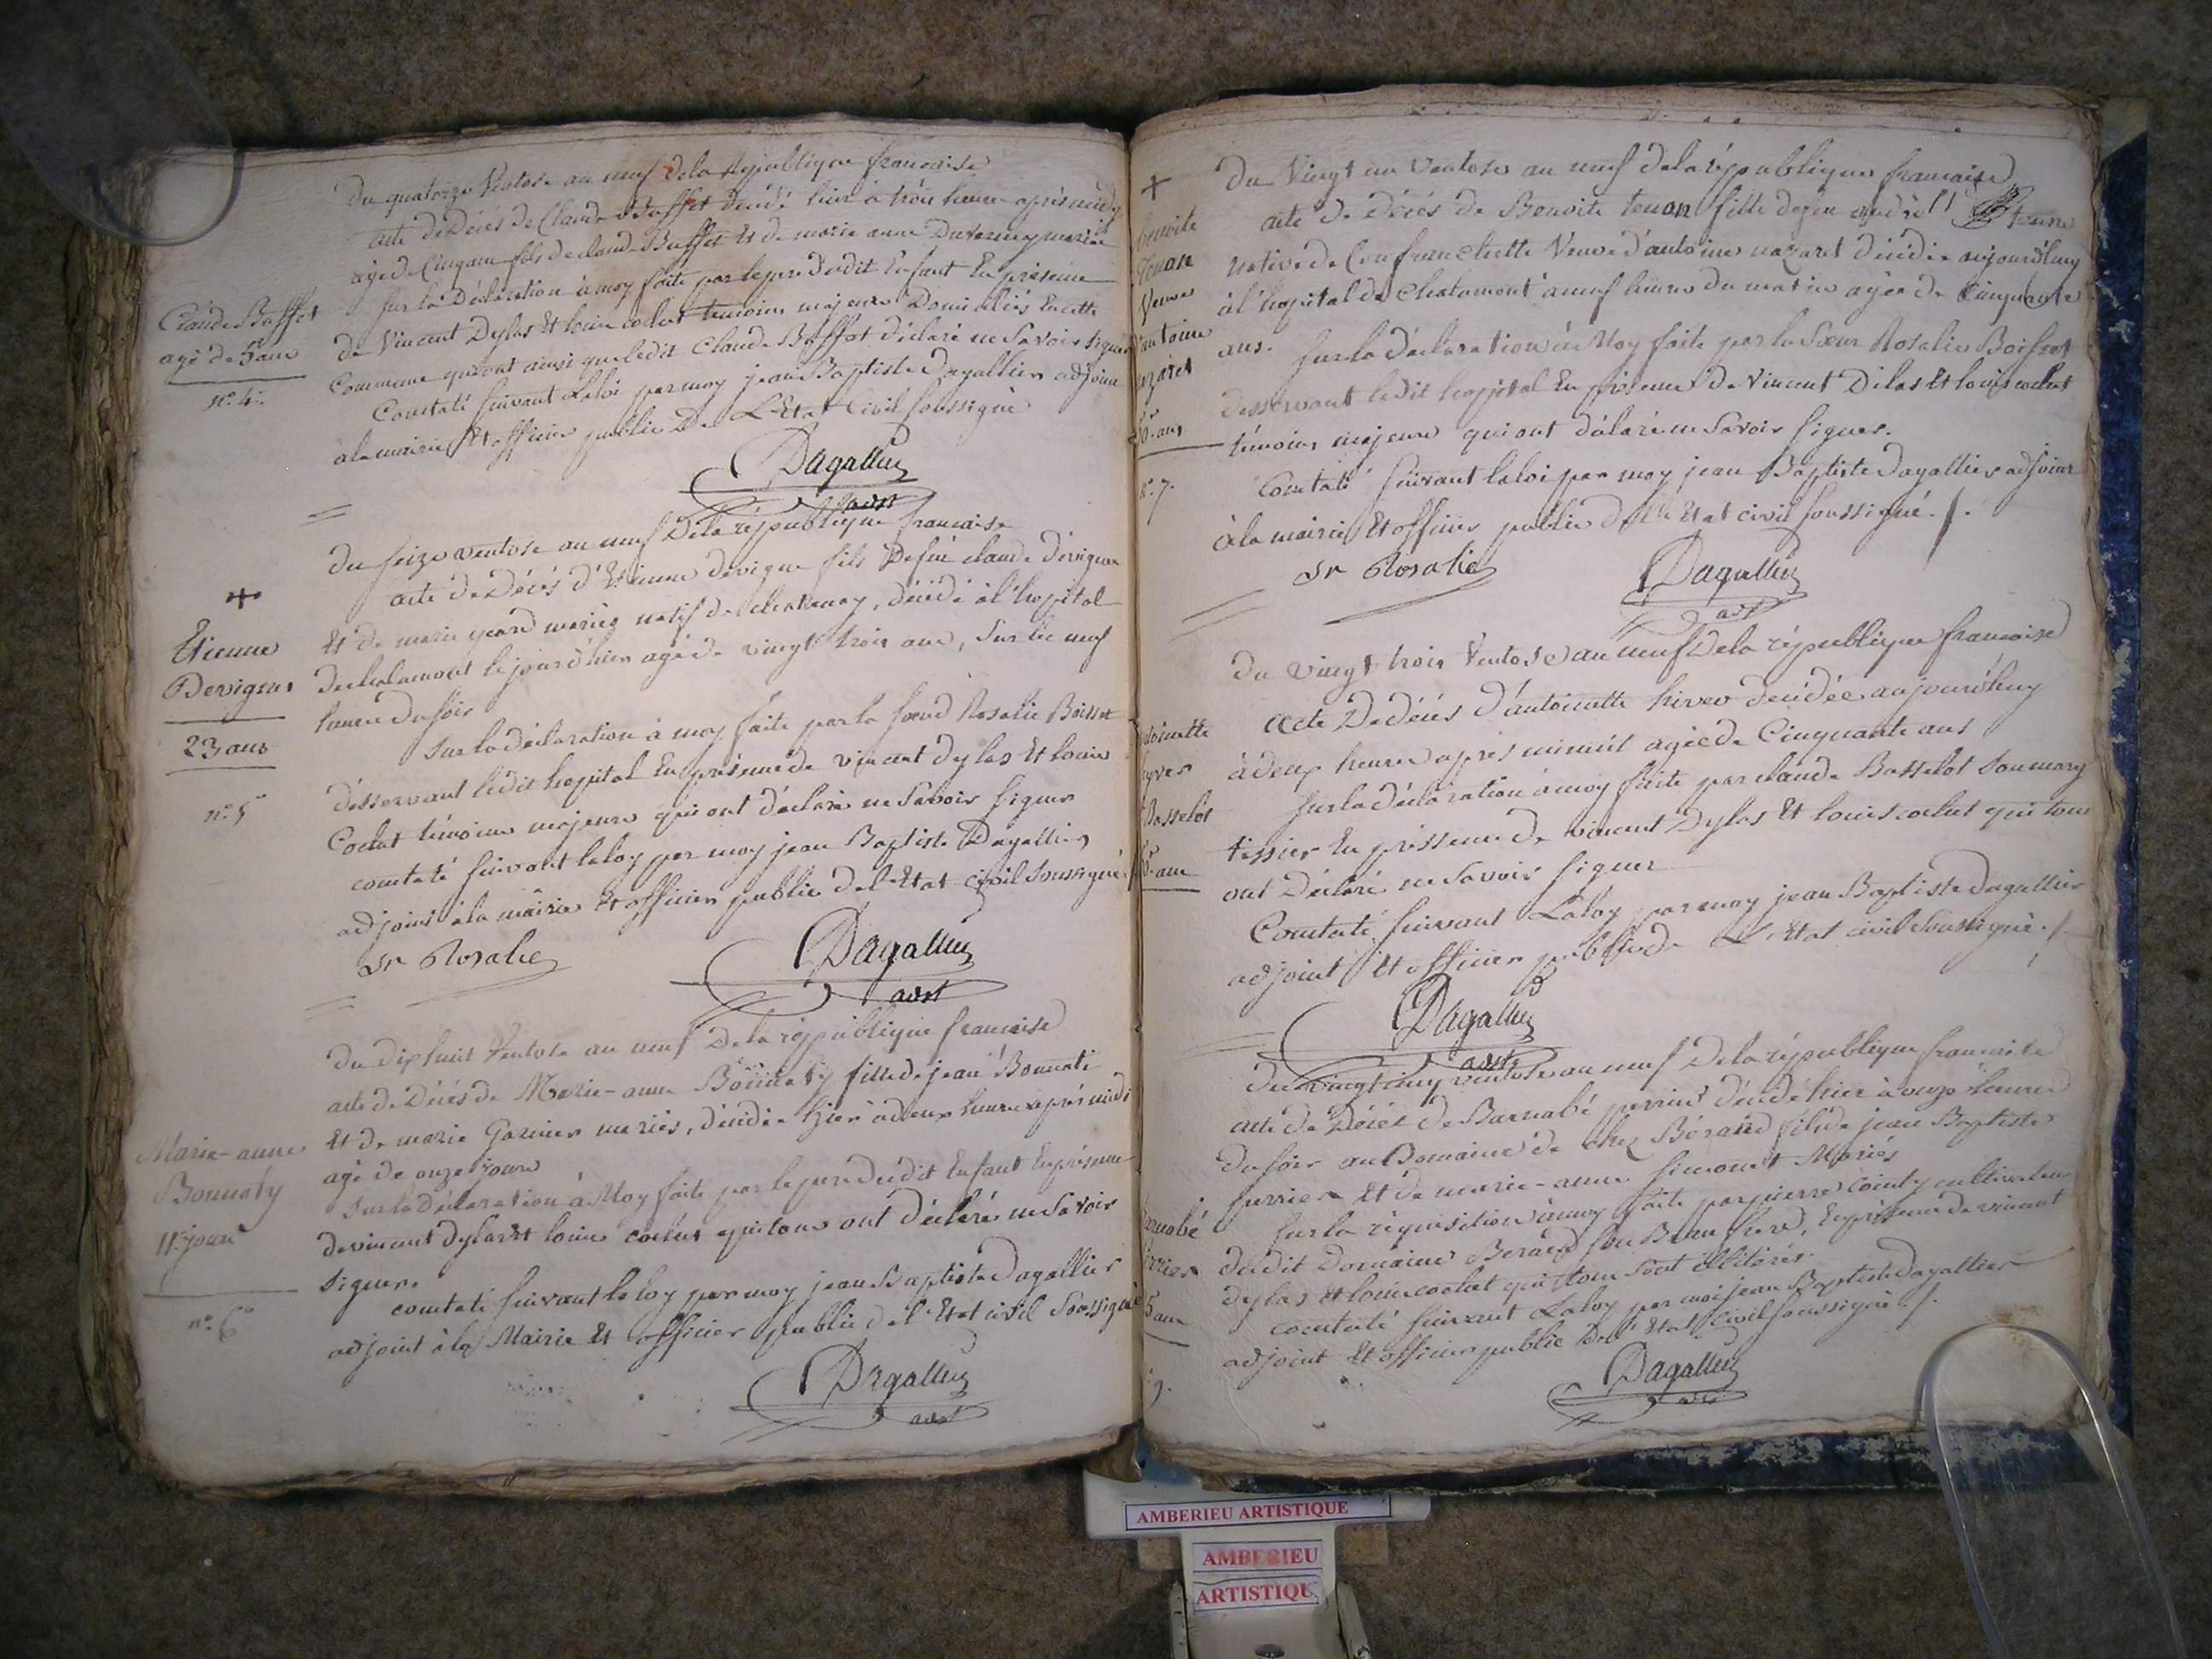 Du quatorze Ventose an neuf dela Republique francaise
acte de Décés de Claude Buffet décédé hier à trois heures après midy
agé de Cinq ans fils de claude Buffet Et de marie anne mariés
Sur la Déclaration à moy faite par le pere dudit Enfant En présence
de Vincent Dylas Et louis coclut temoins majeurs Domiciliés En cette
Commune qui ont ainsi que ledit Claude Buffet déclaré ne Savoir signer
Constaté Suivant Laloi par moy jean Baptiste Dagallier adjoint
a la mairie Et officier public De L'Etat Civil soussigné
Dagallier
adjt
Claude Buffet
agé de 5 ans
n°. 4.
du seize ventose an neuf Dela république francaise
acte de Décés d'Etienne devigne fils Defeu claude devigne
Et De marie mariés natif de chatenay, décédé à l'hopital
dechalamont le jour d'hier agé de vingt trois ans, Sur les neuf
heures du soir
Sur la déclaration à moy faite par la soeur Rosalie Boisset
désservant lédit hopital En présence de vincent dylas Et louis
Coclut témoins majeurs qui ont déclaré ne Savoir signer
constaté suivant laloy par moy jean Baptiste Dagallier
adjoint à la mairie Et officier public del'Etat civil Soussigné
Sr Rosalie
Dagallier
adjt
Etienne
Devigne
23 ans
n°. 5
du dixhuit Ventose an neuf Dela république francaise
acte de Décés de Marie-anne Bonnaty fille de jean Bonnati
Et de marie Garnier mariés, décédée hier à deux heures après midi
agé de onze jours
Sur la Déclaration à Moy faite par le pere dudit Enfant En présence
de vincent dylas Et louis coclut qui tous ont déclaré ne Savoir
signer.
constaté suivant la loy par moy jean Baptiste Dagallier
adjoint à la Mairie Et officier public del'Etat civil Soussigné
Dagallier
adjt
Marie-anne
Bonnaty
11 jours
n°. 6
Du Vingt un Ventose an neuf dela république francaise
acte de Décés de Benoite tenan fille defeu andré
native de Confranchette Veuve d'antoine nazaret décédée aujourd'huy
à l'hopital de Chalamont à neuf heures du matin agée de Cinquante
ans.
Sur la déclaration à Moy faite par la Soeur Rosalie Boisset
desservant ledit hopital En présence de Vincent Dilas Et louis coclut
témoins majeurs qui ont déclaré ne Savoir signer.
Constaté suivant laloi par moy jean Baptiste Dagallier adjoint
à la mairie Et officier public de l'Etat civil soussigné.
Sr Rosalie
Dagallier
adjt
tenan
Veuve
d'antoine
ans
n°. 7.
Du vingt trois Ventose an neuf Dela république francaise
acte De décés d'antoinette hiver décédée aujourd'huy
à deux heures après minuit agée de Cinquante ans
Sur la déclaration à moy faite par claude Basselot son mary
tissier En présence de vincent Dylas Et louis coclut qui tous
ont déclaré ne Savoir signer
Constaté suivant Laloy par moy jean Baptiste Dagallier
adjoint Et officier public de L'Etat civil Soussigné.
Dagallier
adjt
Basselot
ans
du vingt cinq ventose an neuf Dela république francaise
acte de Décés de Barnabé perrier décédé hier à onze heures
du soir au Domaine de chez Bérard fils de jean Baptiste
perrier Et de marie-anne simonet Mariés
Sur la réquisition à moy faite par pierre cultivateur
dudit Domaine Berard son Beau frere, En présence de vincent
dylas Et louis coclut qui tous sont illitérés.
constaté suivant Laloy par moi jean Baptiste Dagallier
adjoint Et officier public De l'Etat Civil soussigné.
Dagallier
adjt
AMBERIEU ARTISTIQUE
AMBERIEU
ARTISTIQU